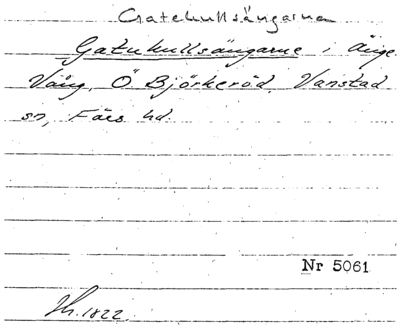 Gatekullsängarna
Gatukullsängarne i Änge
Vång, Ö Björkeröd, Vanstad
sn, Färs hd.
Nr 5061
1822